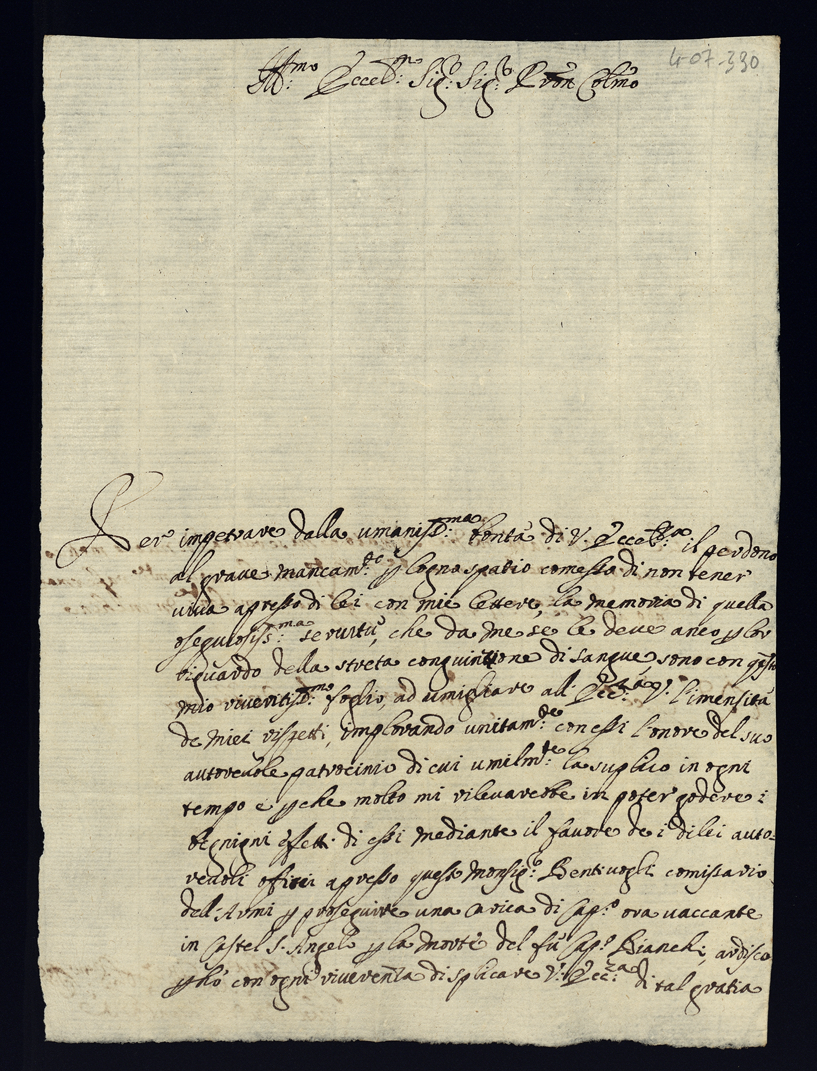 407-330
Ill:mo Eccell:mo Sig:r Sig:r Pron Colmo
Per impetrare dalla umaniss:ma bontà di V. Eccell:za il perdono
al grave mancam:to p longo spatio comesso di non tener
viva apresso di lei con mie lettere, la memoria di quella
ossequiosiss:ma servitù, che da me se le deve anco p lor
riguardo della streta conguintione di sangue, sono con qsto
mio riverentiss:mo foglio, ad umigliare all' Ecc:za V. l'imensità
de miei rispetti, implorando unitam:te con essi l'onore del suo
autorevole patrocinio di cui umilm:te la suplico in ogni
tempo e pche molto mi rilevarebbe in poter godere i
begnigni effetti di essi mediante il favore de i di lei auto=
revoli offitii apresso questo Monsig:r Bentivogli comissario
dell'Armi p proseguire una carica di Cap:o ora vaccante
in Castel S. Angelo p la morte del fù Cap:o Bianchi, ardisco
phò con ogni riverenza di splicare V. Ecc:za di tal gratia